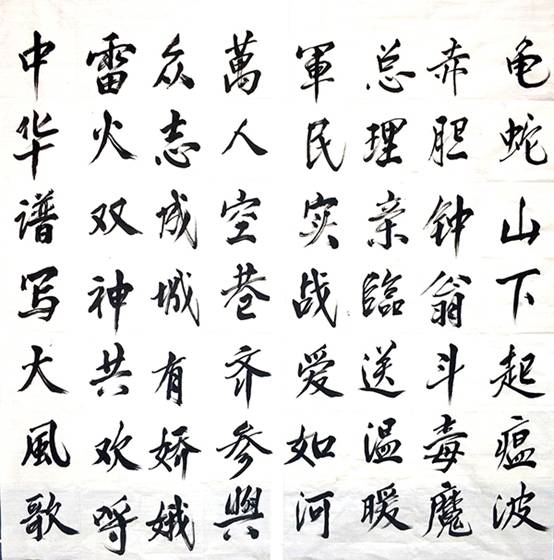 龟蛇山下起瘟波
赤胆钟翁斗毒魔
总理亲臨送温暖
軍民实战爱如河
萬人空巷齐参與
众志成城有娇娥
雷火双神共欢呼
中华谱写大風歌